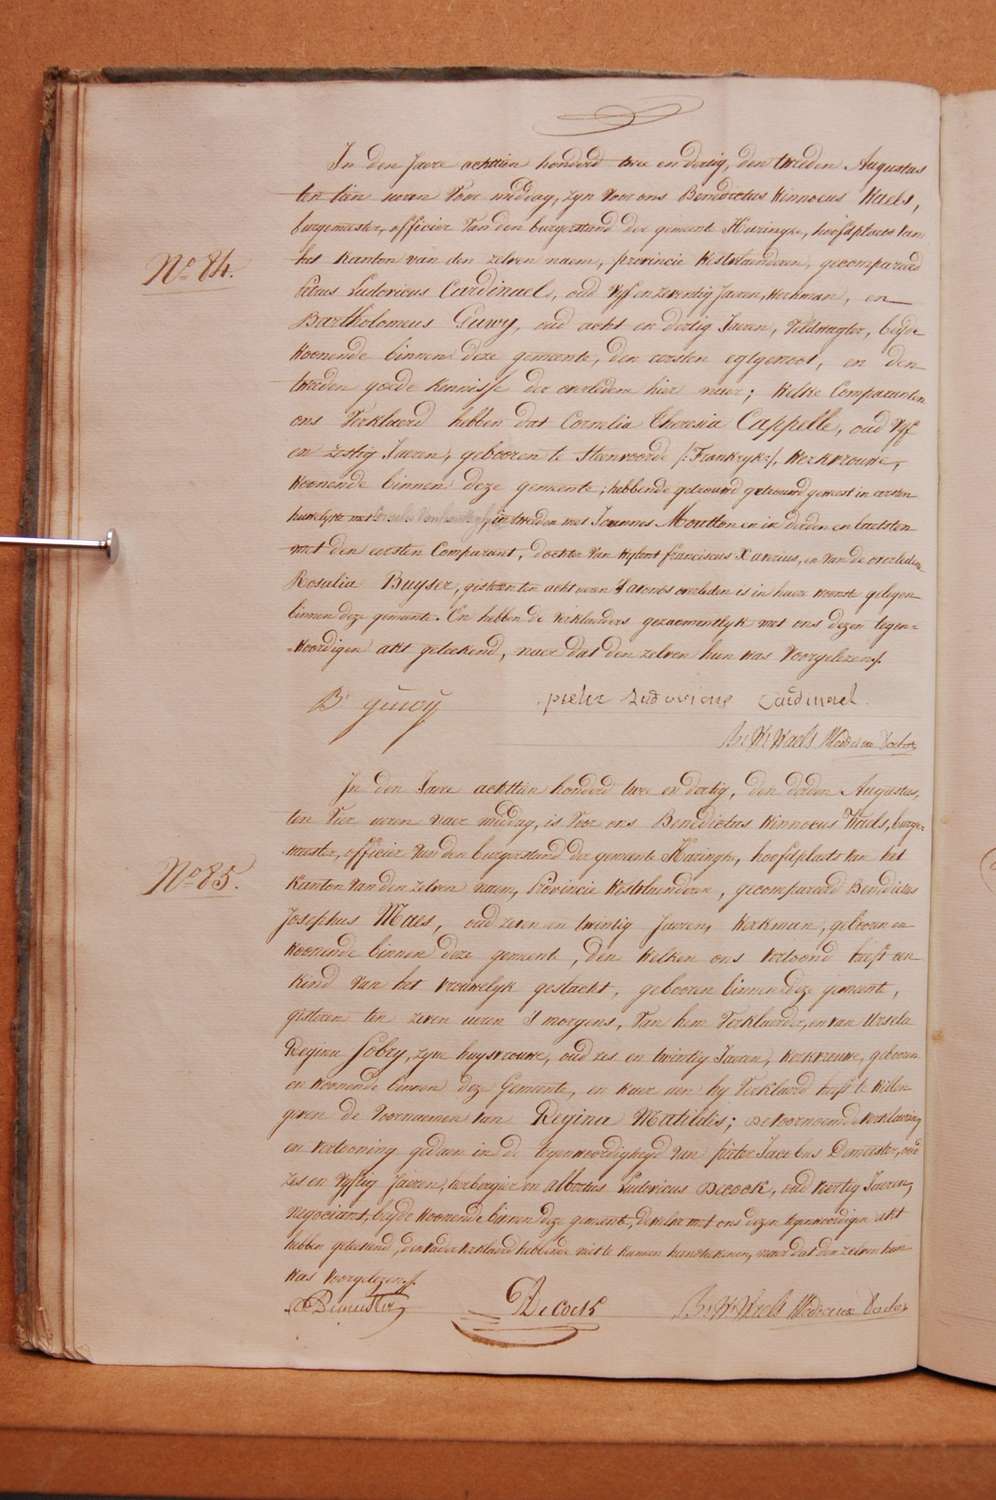 In den Jaere achttien honderd twee en dertig, den tweeden Augustus
ten tien uren voor middag, zyn voor ons Benedictus Winnocus Waels,
burgemeester, officier van den burgerstand der gemeente Haringhe, hoofdplaets van
No. 84.
het kanton van den zelven naem, provincie Westvlaenderen, gecompareerd
Petrus Ludovicus Cardinael, oud vyf en zeventig Jaeren, werkman, en
Bartholomeus Guwy, oud acht en dertig Jaeren, veldwagter, beyde
woonende binnen deze gemeente, den eersten egtgenoot, en den
tweeden goede kennisse der overledene hier naer; welke Comparanten
ons verklaerd hebben dat Cornelia Theresia Cappelle, oud vyf
en zestig Jaeren, gebooren te Steenvoorde /: Frankryk :/, werkvrouwe,
woonende binnen deze gemeente; hebbende getrouwd getrouwd geweest in eersten
huwelyke met in tweeden met Joannes Moutton en in derden en laetsten
met den eersten Comparant, dochter van wylent Franciscus Xaverius, en van de overledene
Rosalia Buyser, gisteren ten acht uren 's avonds overleden is in haere woonst gelegen
binnen deze gemeente. En hebben de verklaerders gezaementlyk met ons dezen tegen=
=woordigen akt geteekend, naer dat den zelven hun was voorgelezen.
Br guwÿ pieter Ludovicus Cardinael
Be. Wt. Waels Medecin Doctor
In den Jaere achttien honderd twee en dertig, den derden Augustus,
ten vier uren naer middag, is voor ons Benedictus Winnocus Waels, burge-
meester, officier van den burgerstand der gemeente Haringhe, hoofdplaets van het
No. 85.
Kanton van den zelven naem, Provincie Westvlaenderen, gecompareerd Benedictus
Josephus Maes, oud zeven en twintig Jaeren, werkman, gebooren en
woonende binnen deze gemeente, den welken ons vertoond heeft een
kind van het vrouwelyk geslacht, gebooren binnen deze gemeente,
gisteren ten zeven uren 's morgens, van hem verklaerder, en van Ursula
Regina Jobry, zyne huysvrouwe, oud zes en twintig Jaeren, werkvrouwe, gebooren
en woonende binnen deze Gemeente, en waer aen hy verklaerd heeft te willen
geven de voornaemen van Regina Matildis; de voornoemde verklaering
en vertooning gedaen in de tegenwoordigheyd van pieter Jacobus Demeester, oud
zes en vyftig Jaeren, herbergier en Albertus Ludovicus Decock, oud veertig Jaeren,
negociant, beyde woonende binnen deze gemeente, dewelke met ons dezen tegenwoordigen akt
hebben geteekend, den vader verklaerd hebbende niet te kunnen handteekenen, naer dat den zelven hun
was voorgelezen.
Demeester Decock Be. Wt. Waels Medecin Doctor